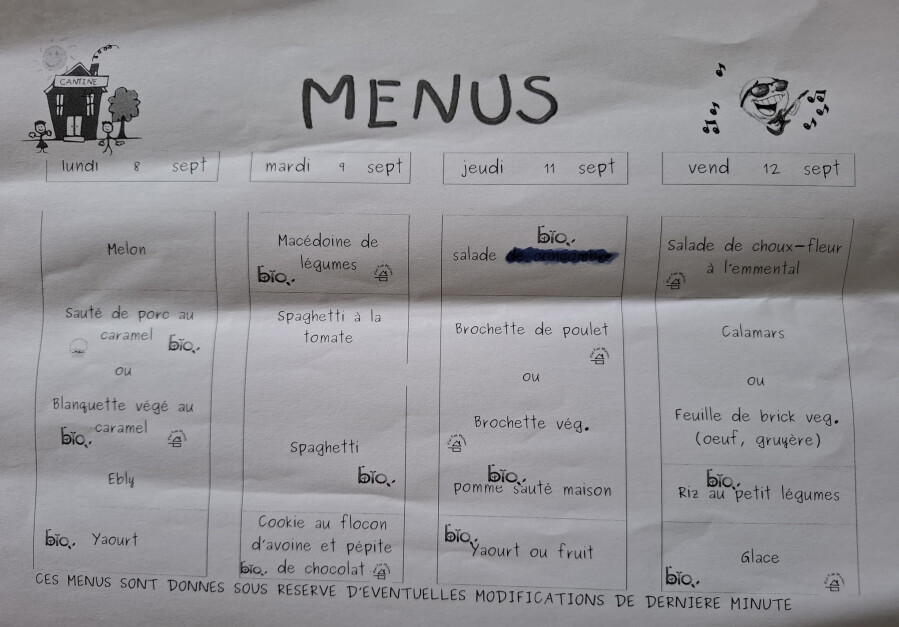 CANTINE
MENUS
lundi 8 sept
Melon
Sauté de porc au
caramel bio
ou
Blanquette végé au
caramel
bio
Ebly
bio Yaourt
mardi 9 sept
Macédoine de
légumes
bio
Spaghetti à la
tomate
Spaghetti
bio
Cookie au flocon
d'avoine et pépite
bio de chocolat
jeudi 11 sept
bio
salade
Brochette de poulet
ou
Brochette vég.
bio
pomme sauté maison
bio
Yaourt ou fruit
vend 12 sept
Salade de choux-fleur
à l'emmental
Calamars
ou
Feuille de brick veg.
(oeuf, gruyère)
bio
Riz au petit légumes
Glace
bio
CES MENUS SONT DONNES SOUS RESERVE D'EVENTUELLES MODIFICATIONS DE DERNIERE MINUTE